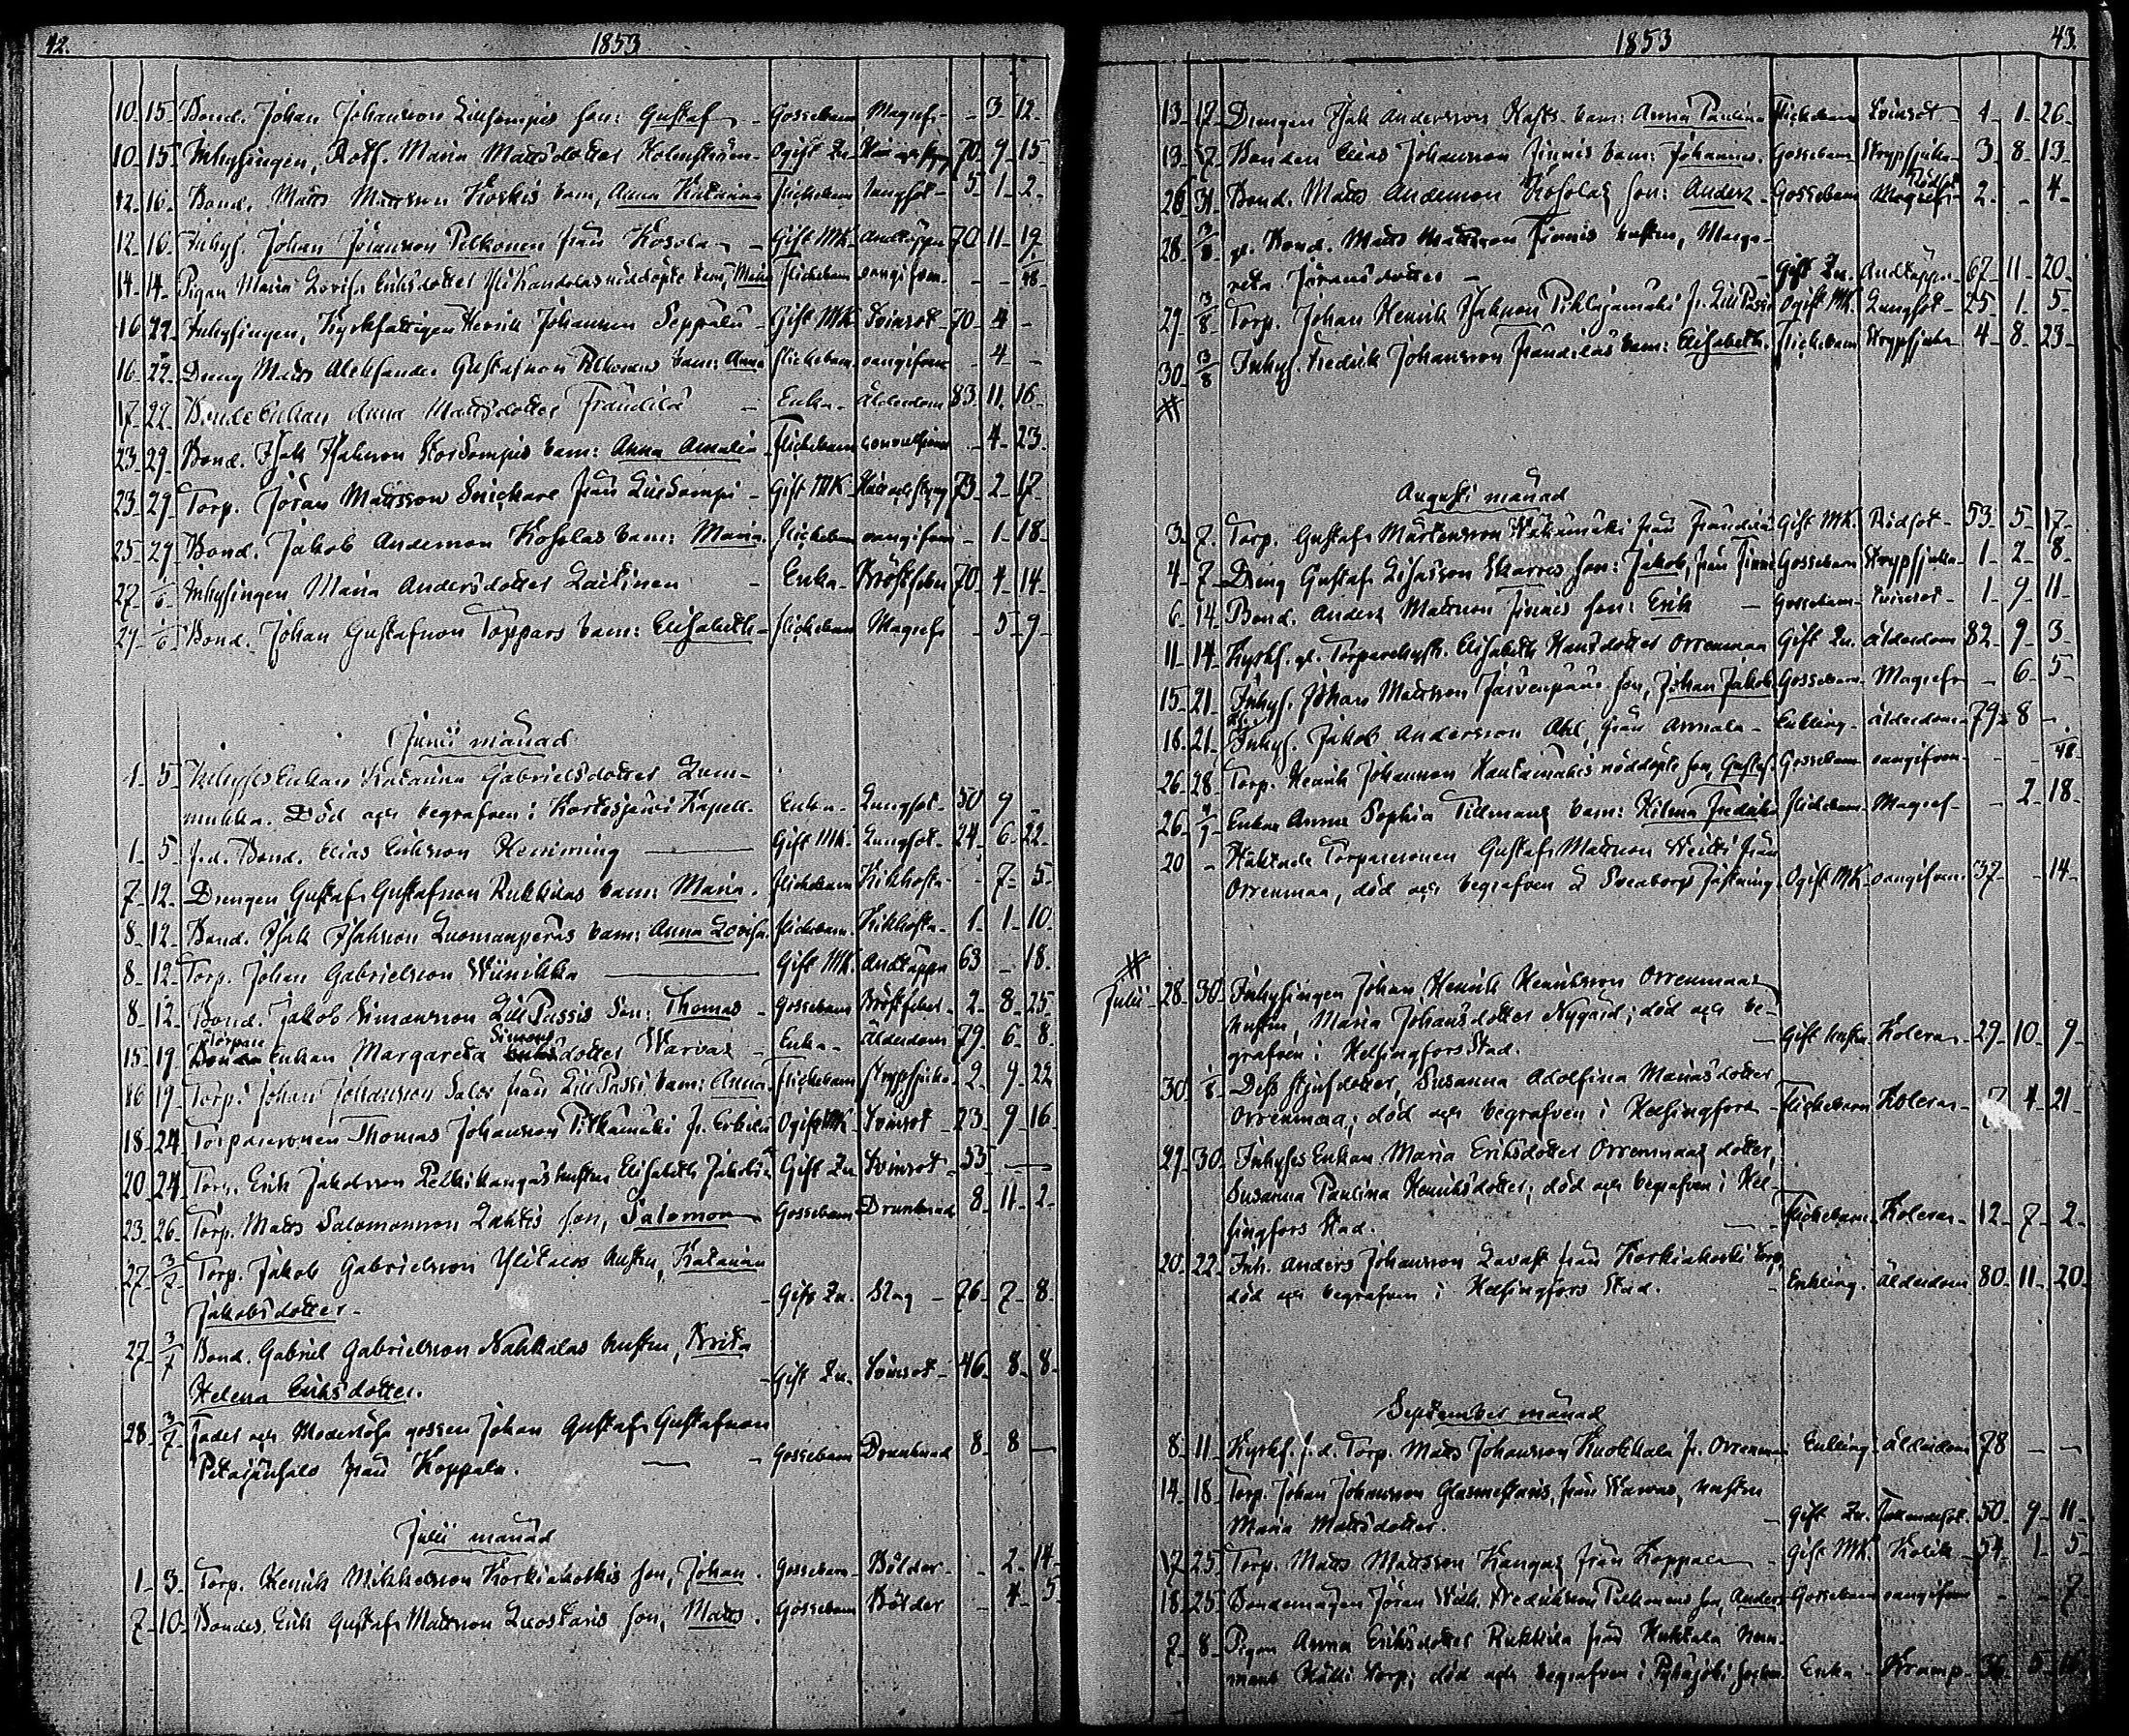 42. 1853
10. 15. Bond. Johan Johansson Lillsompis son: Gustaf - Gossebarn Magref - - 3. 12.
10. 15. Inhysingen, Rotf. Maria Mattsdotter Holmström - Ogift Qu. 70. 9. 15.
12. 16. Bond. Matts Mattsson Koskis barn, Anna Katarina flickebarn lungsot - 5. 1. 2.
12. 16. Inhys. Johan Johansson Pelkonen från Kosola - Gift MK. Andtäppa 70. 11. 19.
14. 14. Pigan Maria Lovisa Eriksdotter nöddöpte barn, Maria flickebarn oangifven - - 48.
16. 22. Inhysingen, Kyrkfattigen Henrik Johansson Seppälä - Gift MK. Tvinsot - 70. 4. -
16. 22. Dreng Matts Aleksander Gustafsson Pelkonens barn: Anna flickebarn oangifven - 4. -
17. 22. Bonde Enkan Anna Mattsdotter Frändilä - Enka - Ålderdom 83. 11. 16.
23. 29. Bond. Isak Isaksson Storsompis barn: Anna Amalia Flickebarn convulsioner - 4. 23.
23. 29. Torp. Jöran Mattsson Snickare från Lillsompi - Gift MK. Håll och styng 73. 2. 17.
25. 29. Bond. Jakob Andersson Kosolas barn: Maria. flickebarn oangifven - 1. 18.
27. 5/6 Inhysingen Maria Andersdotter Laitinen - Enka - Bröstfeber 70. 4. 14.
29. 5/6 Bond. Johan Gustafsson Toppars barn: Elisabeth - flickebarn Magref - 5. 9.
Junii månad
1. 5. Inhyses Enkan Katarina Gabrielsdotter Lum-
mukka. Död och begrafven i Kortesjärvi Kapell. Enka - Lungsot - 50. 9. -
1. 5. f.d. Bond. Elias Eriksson Hemming - Gift MK. Lungsot - 24. 6. 22.
7. 12. Drengen Gustaf Gustafsson Rukkilas barn: Maria. flickebarn Kikhosta - - 7. 5.
8. 12. Bond. Isak Isaksson Luomanperäs barn: Anna Lovisa. flickebarn. Kikhosta - 1. 1. 10.
8. 12. Torp. Johan Gabrielsson Wiinikka - Gift MK. Andtäppa 63. - 18.
8. 12. Bond. Jakob Simonsson Lill Passis Son: Thomas - Gossebarn Bröstfeber - 2. 8. 25.
15. 19. Torpare Enkan Margareta Simonsdotter Warvas - Enka - Ålderdom 79. 6. 8.
16. 19. Torp. Johan Johansson Salos från Lill Passi, barn: Anna - flickebarn Strypsjuka - 2. 9. 22.
18. 24. Torparesonen Thomas Johansson Pitkämäki fr. Erkilä Ogift MK. Tvinsot - 23. 9. 16.
20. 24. Torp. Erik Jakobsson Pelkikangas hustru Elisabeth Jakobsdr Gift Qu. Tvinsot - 53. -
23. 26. Torp. Matts Salomonsson Lahtis son, Salomon - Gossebarn Drunknad 8. 11. 2.
27. 3/7 Torp. Jakob Gabrielsson Ylitalos hustru, Katarina
Jakobsdotter - Gift Qu. Slag - 76. 7. 8.
27. 3/7 Bond. Gabriel Gabrielsson Nahkalas hustru, Brita
Helena Eriksdotter. - Gift Qu. Tvinsot - 46. 8. 8.
28. 3/7 Fader och Moderlösa gossen Johan Gustaf Gustafsson
från Koppala. - Gossebarn Drunknad 8. 8. -
Julii månad
1. 3. Torp. Henrik Mikkelsson Korkiakoskis son, Johan. Gossebarn - Bölder - - 2. 14.
7. 10. Bondes. Erik Gustaf Mattsson Luostaris son, Matts. Gossebarn Bölder - 4. 5.
1853 43.
13. 17. Drengen Isak Andersson Kasts barn: Anna Paulina Flickebarn Tvinsot - 4. 1. 26.
13. 17. Bonden Elias Johansson Finnis barn: Johannes. Gossebarn Strypsjuka - 3. 8. 13.
26. 31. Bond. Matts Andersson Kosolas son: Anders - Gossebarn Rödsot 2. - 4.
28. 3/8 gl. Bond. Matts Mattsson Finnis hustru, Marga-
reta Jöransdotter - Gift Qu. Andtäppa - 67. 11. 20.
29. 3/8 Torp. Johan Henrik Isaksson Pihlajamäki fr. Lill Passi Ogift MK. Lungsot - 25. 1. 5.
30. 3/8 Inhys. Fredrik Johansson Frändiläs barn: Elisabeth. Flickebarn Strypsjuka - 4. 8. 23.
#
Augusti månad
3. 7. Torp. Gustaf Mårtensson från Frändilä Gift MK. Rödsot - 53. 5. 17.
4. 7. Dreng Gustaf Eliasson Skarres son: Jakob, från Finni Gossebarn Strypsjuka - 1. 2. 8.
6. 14. Bond. Anders Mattsson Finnis son: Erik - Gossebarn - Tvinsot - 1. 9. 11.
11. 14. Kyrkf. gl. Torparehustr. Elisabeth Hansdotter Orrenmaa Gift Qu. ålderdom 82. 9. 3.
15. 21. Inhys. Johan Mattsson Järvenpää son, Johan Jakob. Gossebarn - Magref - 6. 5.
16. 21. Inhys. Jakob Andersson Ahl, från Annala - Enkling - ålderdom - 79. 8. -
26. 28. Torp. Henrik Johansson Hautamäkis nöddöpte son, Gustaf. Gossebarn oangifven - - 48.
26. 4/9 Enkan Anna Sophia Tillmans barn: Hilma Fredrika Flickebarn - Magref - - 2. 18.
20 - Häktade Torparesonen Gustaf Mattsson från
Orrenmaa, död och begrafven å Sveaborgs fästning. Ogift MK. oangifven 37. - 14.
#
Julii - 28. 30. Inhysingen Johan Henrik Henriksson Orrenmaas
hustru, Maria Johansdotter Nygård; död och be-
grafven i Helsingfors Stad. - Gift hustru Kolera - 29. 10. 9.
30. 1/8 Dess styfdotter, Susanna Adolfina Mariasdotter
Orrenmaa; död och begrafven i Helsingfors - Flickebarn Kolera - 4. 21.
29. 30. Inhyses Enkan Maria Eriksdotter Orrenmaas dotter,
Susanna Paulina Henriksdotter; död och begrafven i Hel-
singfors Stad. - Flickebarn. Kolera - 12. 7. 2.
20. 22. Inh. Anders Johansson Lavast från Korkiakoski torp,
död och begrafven i Helsingfors Stad. - Enkling. ålderdom 80. 11. 20.
September månad
8. 11. Kyrkf. f.d. Torp. Matts Johansson Kuokkala fr. Orrenmaa Enkling. ålderdom 78. - -
14. 18. Torp. Johan Johansson Glasmestaris, från Warvas, hustru
Maria Mattsdotter. - Gift Qu. 50. 9. 11.
17. 25. Torp. Matts Mattsson Kangas från Koppala - Gift MK. Kolik - 54. 1. 5.
18. 25. Bondemågen Jöran Wilh. Fredriksson Pelkonens son, Anders - Gossebarn oangifven - - 7.
7. 8. Pigan Anna Eriksdotter Rukkila från Huhtala hem-
mans Hälli torp; död och begrafven i Pyhäjoki socken Enka - Kramp - 36. 5. 16.